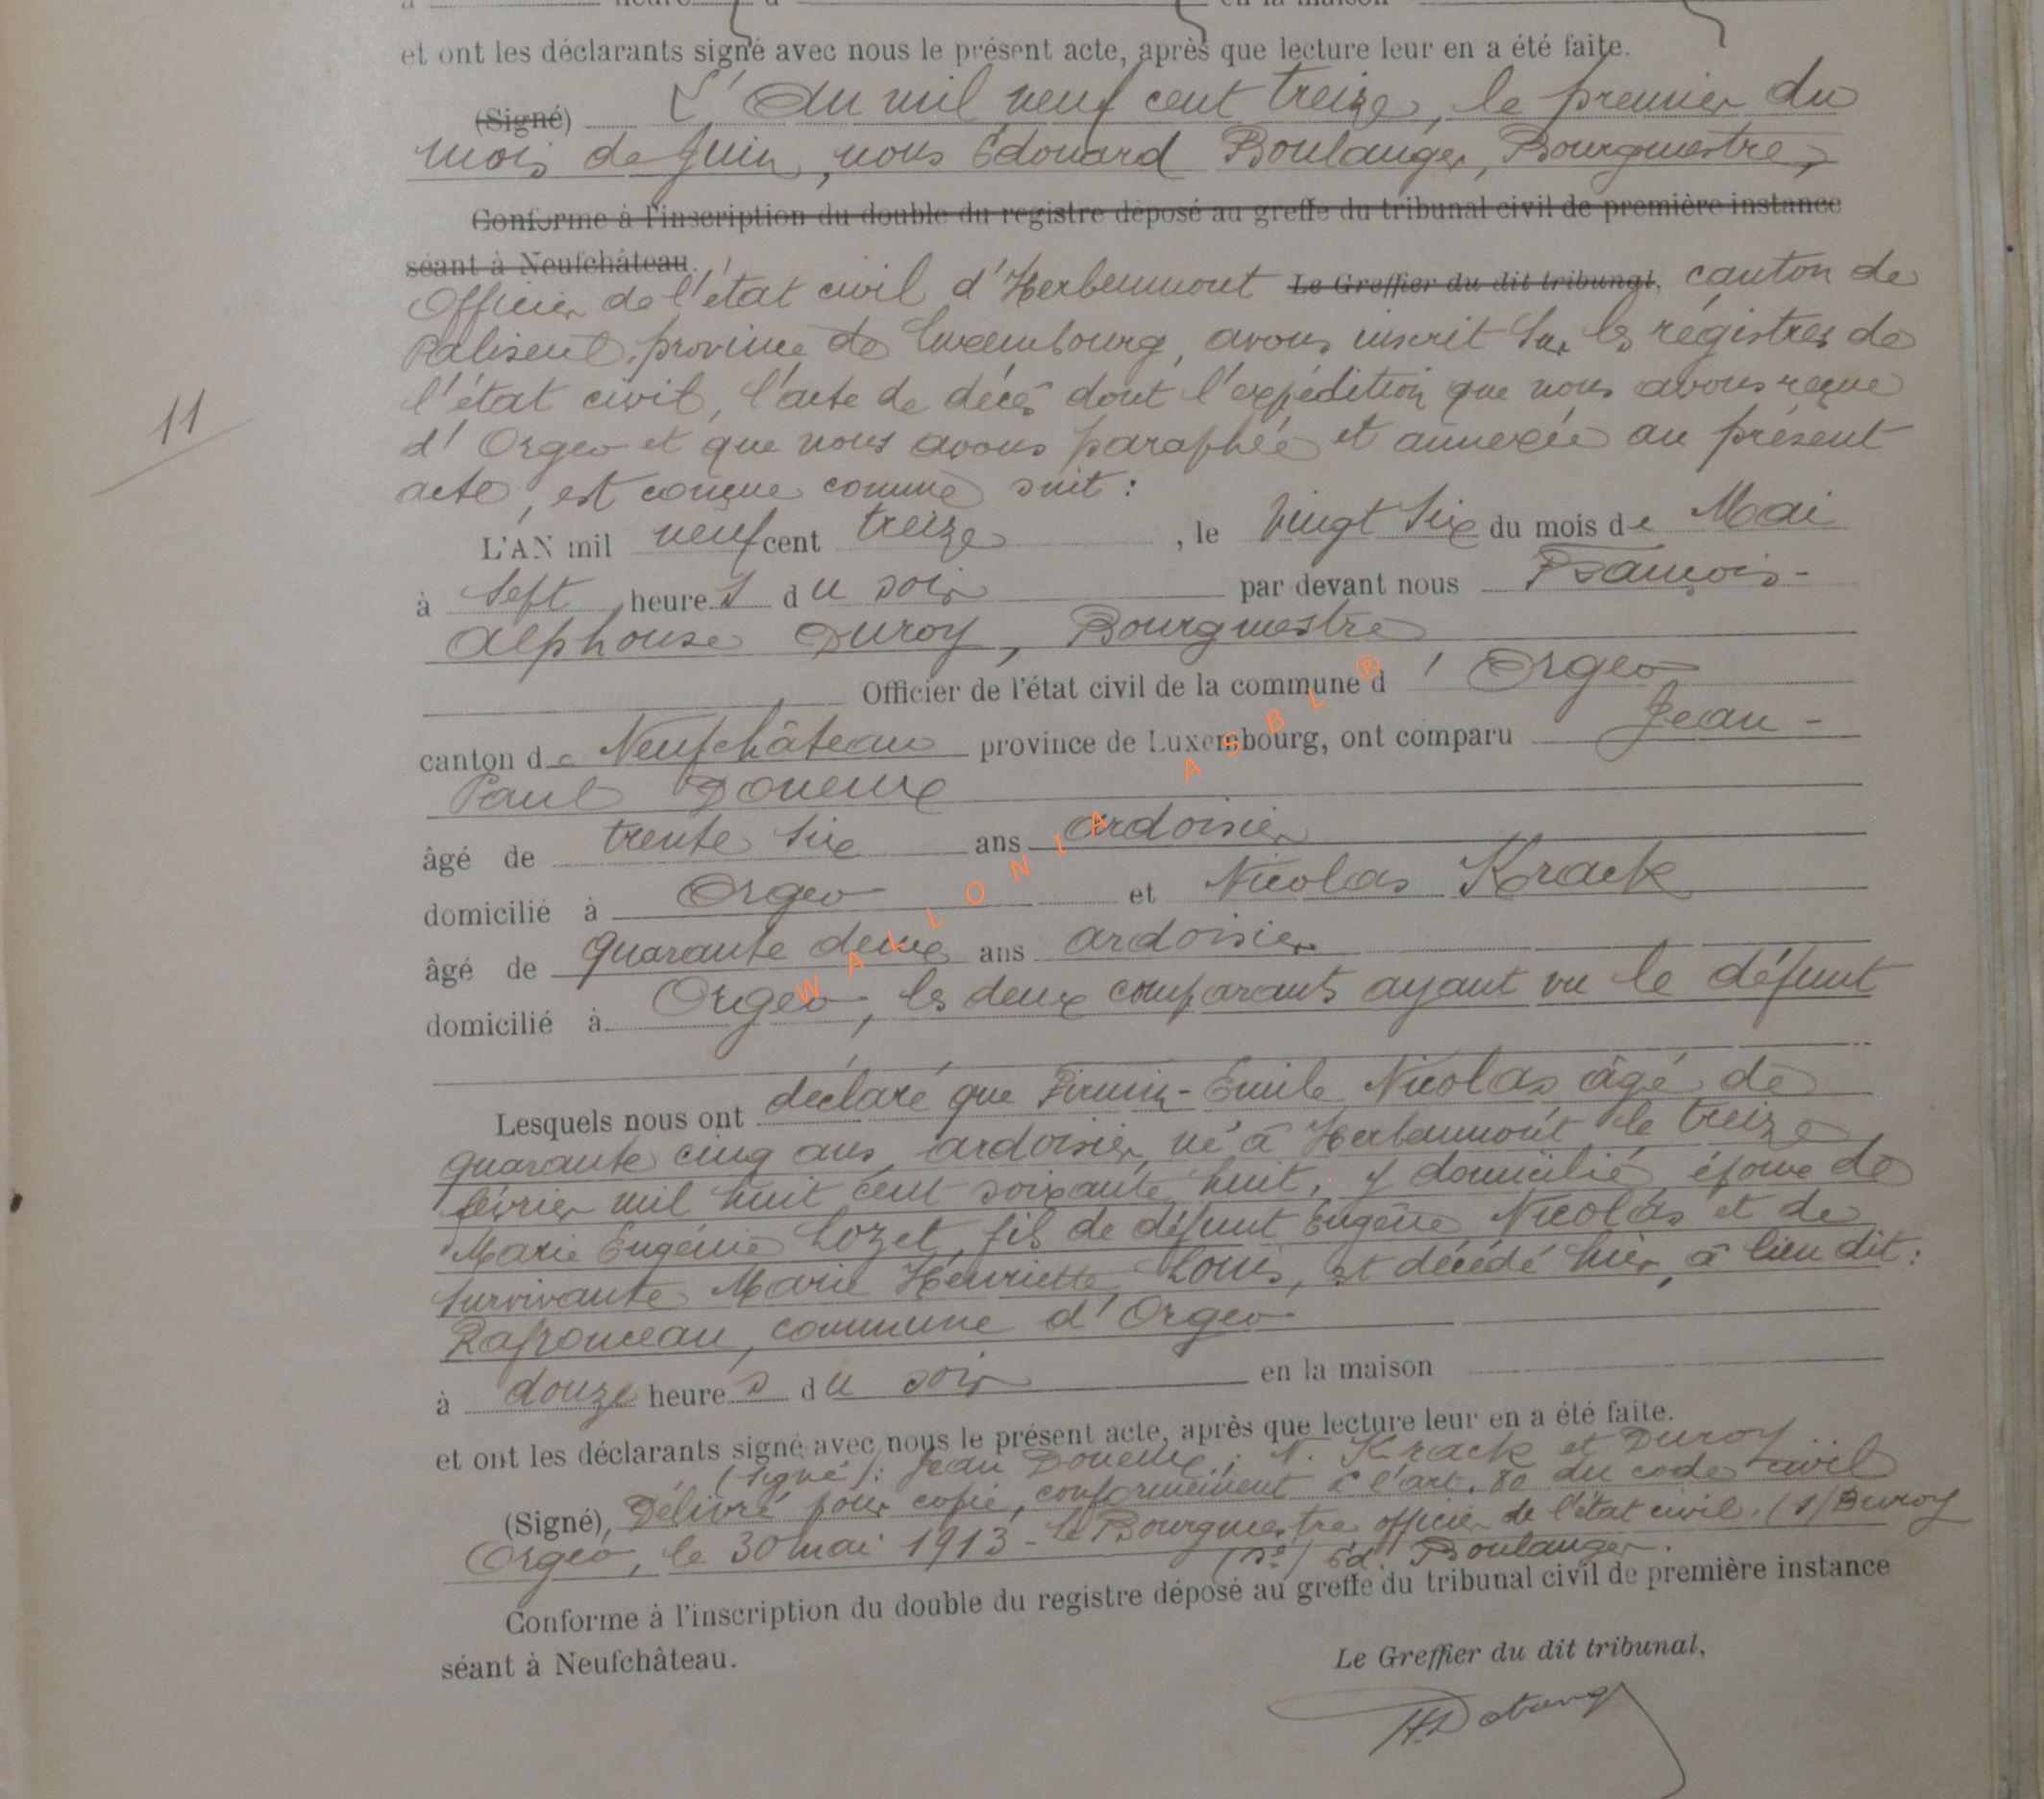 et ont les déclarants signé avec nous le présent acte, après que lecture leur en a été faite.
(Signé) L'An mil neuf cent treize, le premier du
mois de Juin, nous Edouard Boulanger, Bourgmestre,
Conforme à l'inscription du double du registre déposé au greffe du tribunal civil de première instance
séant à Neufchâteau.
Officier de l'état civil d'Herbeumont Le Greffier du dit tribunal, canton de
Paliseul, province de Luxembourg, avons inscrit sur les régistres de
l'état civil, l'acte de décès dont l'expédition que nous avons reçue
d'Orgeo et que nous avons paraphée et annexée au présent
acte, est conçue comme suit :
11
L'AN mil neuf cent treize, le vingt six du mois de Mai
à sept heures du soir par devant nous François-
Alphonse Duroy, Bourgmestre
Officier de l'état civil de la commune d'Orgeo
canton de Neufchâteau province de Luxembourg, ont comparu Jean-
Paul Doneux
âgé de trente six ans ardoisier
domicilié à Orgeo et Nicolas Krack
âgé de quarante deux ans ardoisier
domicilié à Orgeo, les deux comparants ayant vu le défunt
Lesquels nous ont déclaré que Firmin-Emile Nicolas âgé de
quarante cinq ans, ardoisier, né à Herbeumont le treize
février mil huit cent soixante huit, y domicilié, époux de
Marie Eugénie Lozet, fils de défunt Eugène Nicolas et de
survivante Marie Henriette Louis, est décédé hier, à lieu dit :
commune d'Orgeo
à douze heures du soir en la maison
et ont les déclarants signé avec nous le présent acte, après que lecture leur en a été faite.
(signé) : Jean Doneux ; N. Krack et Duroy
(Signé), Délivré pour copie, conformément à l'art. 80 du code civil
Orgeo, le 30 mai 1913 - le Bourgmestre officier de l'état civil. (s) Duroy
(sé) Ed. Boulanger.
Conforme à l'inscription du double du registre déposé au greffe du tribunal civil de première instance
séant à Neufchâteau.
Le Greffier du dit tribunal,
WALLONIA ASBL ®